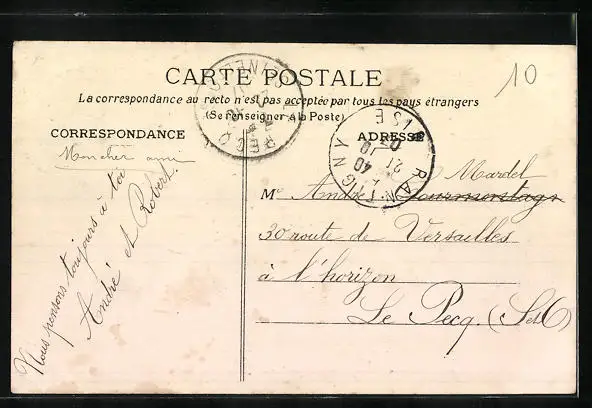 CARTE POSTALE
10
La correspondance au recto n'est pas acceptée par tous les pays étrangers
(Se renseigner à la Poste)
CORRESPONDANCE
ADRESSE
Mon cher ami
Nous pensons toujours à toi
André et Robert.
Mardel
Mr André
30 route de Versailles
à l'horizon
Le Pecq. (S et O)